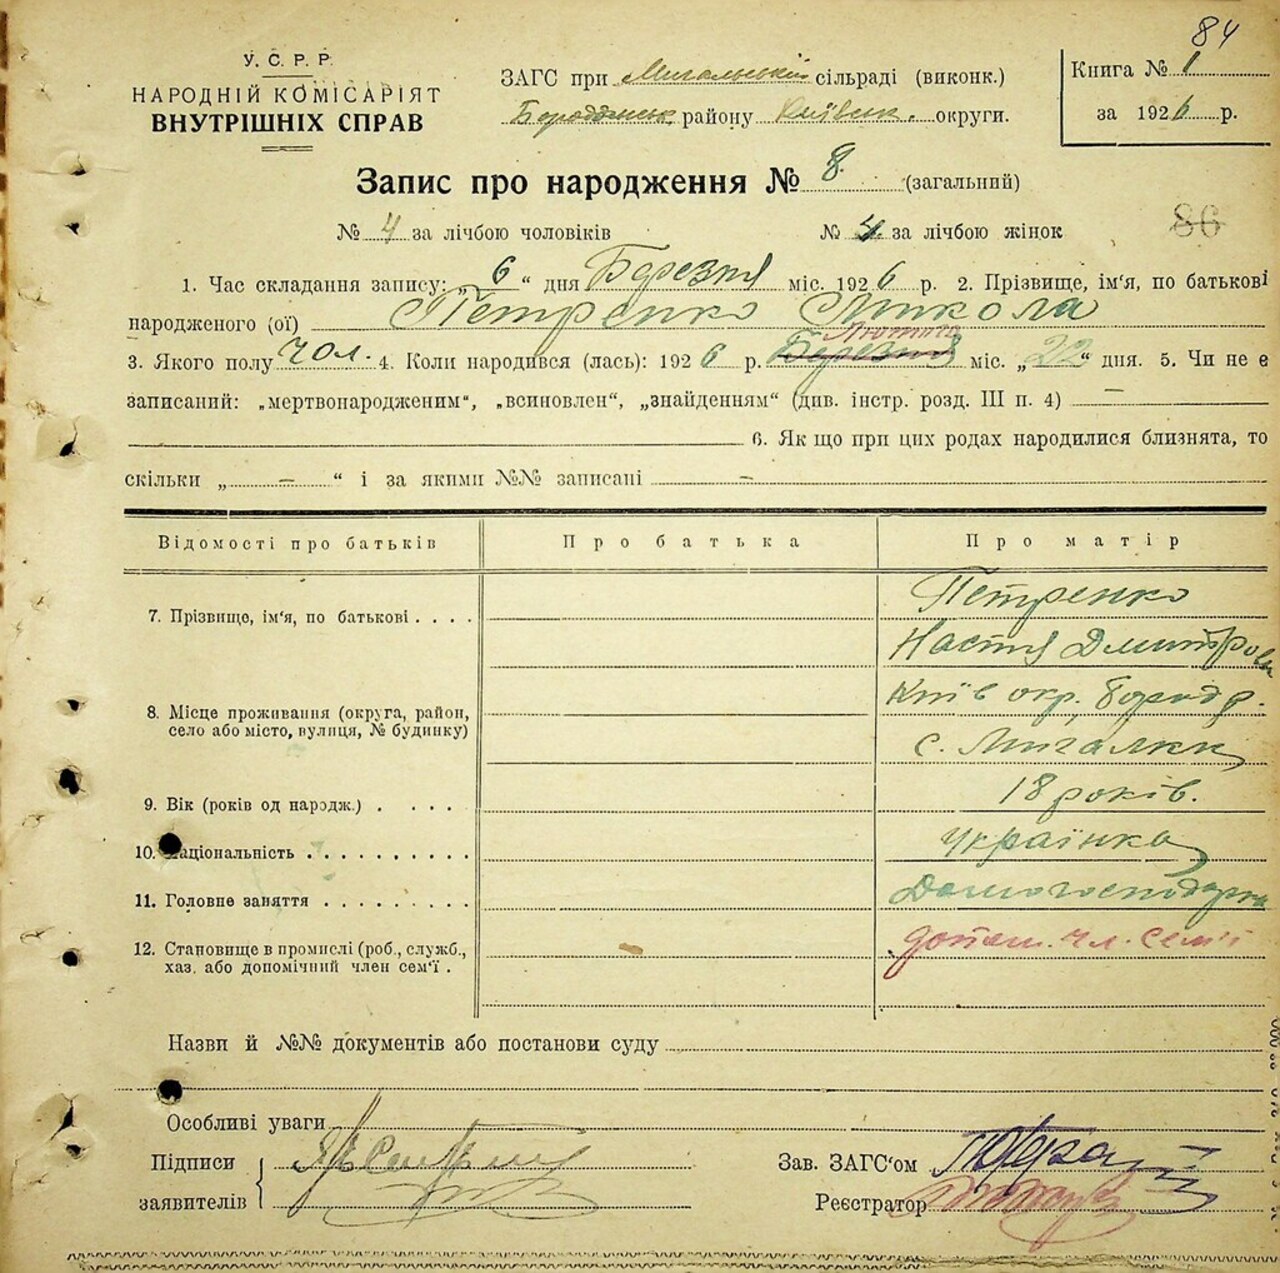 84
У. С. Р. Р.
НАРОДНІЙ КОМІСАРІЯТ
ВНУТРІШНІХ СПРАВ
ЗАГС при Мигальській сільраді (виконк.)
Бородянськ. району Київськ. округи.
Книга № 1
за 1926 р.
Запис про народження № 8. (загальний)
№ 4 за лічбою чоловіків № 4 за лічбою жінок
86
1. Час складання запису: „6“ дня Березня міс. 1926 р. 2. Прізвище, ім'я, по батькові
народженого (ої) Петренко Микола
Лютого
3. Якого полу чол. 4. Коли народився (лась): 1926 р. Березня міс. „22“ дня. 5. Чи не є
записаний: „мертвонародженим“, „всиновлен“, „знайденням“ (див. інстр. розд. III п. 4) –
6. Як що при цих родах народилися близнята, то
скільки „ – “ і за якими №№ записані –
Відомості про батьків Про батька Про матір
7. Прізвище, ім'я, по батькові . . . . Петренко
Настя Дмитрова
8. Місце проживання (округа, район, Київ окр., Бород р.
село або місто, вулиця, № будинку) с. Мигалки
9. Вік (років од народж.) . . . . 18 років.
10. Національність . . . . . . . . . . Українка
11. Головне заняття . . . . . . . . . Домогосподарка
12. Становище в промислі (роб., служб., допом. чл. сем'ї
хаз. або допомічний член сем'ї .
Назви й №№ документів або постанови суду
Особливі уваги
Підписи
заявителів
Зав. ЗАГС'ом
Реєстратор